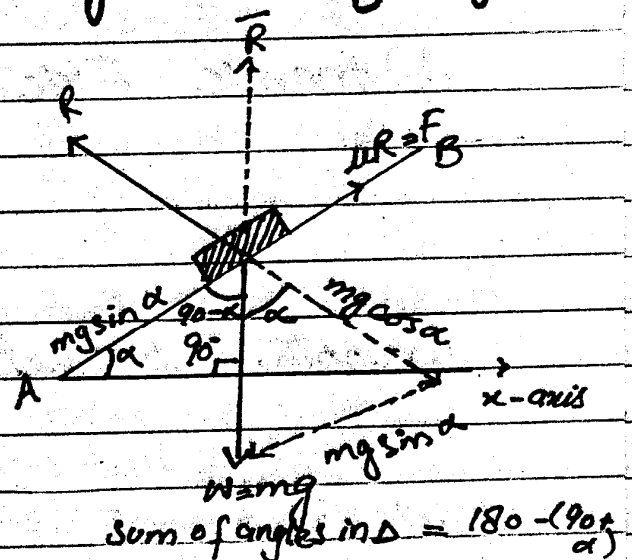 R
R
μR = F
B
mg sin α
90-α
α
mg cos α
α
90°
A
x-axis
mg sin α
W = mg
Sum of angles in Δ = 180 - (90 + α)